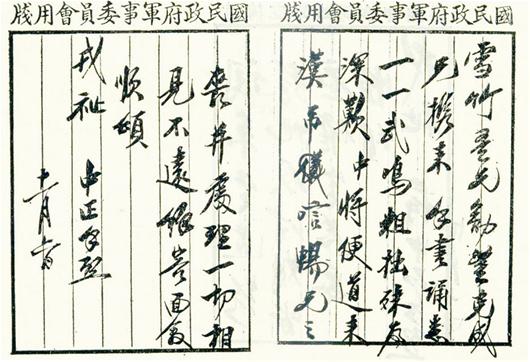 國民政府軍事委員會用牋
雪竹吾兄勛鑒克成
兄攜來 手書誦悉
一一武鳴粗拙殊為
深歎中將便道來
漢吊 暢兄之
國民政府軍事委員會用牋
喪并處理一切相
見不遠餘當面敘
順頌
戎祉 中正手啟
十一月六日